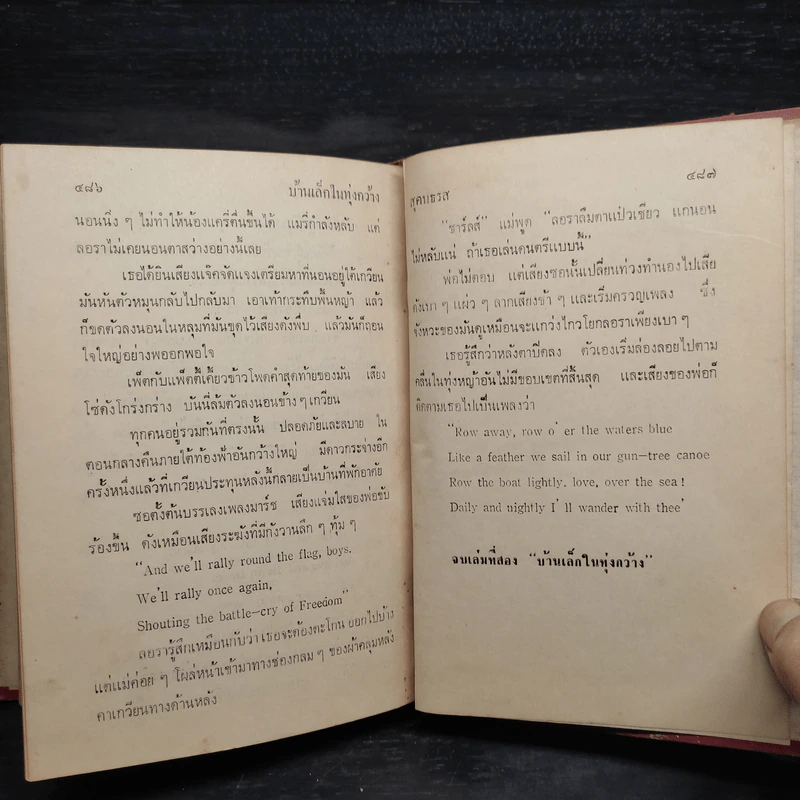 ๔๘๖ บ้านเล็กในทุ่งกว้าง
นอนนิ่ง ๆ ไม่ทำให้น้องแครี่ตื่นขึ้นได้ แมรี่กำลังหลับ แต่
ลอราไม่เคยนอนตาสว่างอย่างนี้เลย
เธอได้ยินเสียงแจ๊คจัดแจงเตรียมหาที่นอนอยู่ใต้เกวียน
มันหันตัวหมุนกลับไปกลับมา เอาเท้ากระทืบพื้นหญ้า แล้ว
ก็ขดตัวลงนอนในหลุมที่มันขุดไว้เสียงดังพึ่บ แล้วมันก็ถอน
ใจใหญ่อย่างพออกพอใจ
เพ็ตกับแพ็ตตี้เคี้ยวข้าวโพดคำสุดท้ายของมัน เสียง
โซ่ดังโกร่งกร่าง บันนี่ล้มตัวลงนอนข้าง ๆ เกวียน
ทุกคนอยู่รวมกันที่ตรงนั้น ปลอดภัยและสบาย ใน
ตอนกลางคืนภายใต้ท้องฟ้าอันกว้างใหญ่ มีดาวกระจ่างอีก
ครั้งหนึ่งแล้วที่เกวียนประทุนหลังนี้กลายเป็นบ้านที่พักอาศัย
ซอตั้งต้นบรรเลงเพลงมาร์ช เสียงแจ่มใสของพ่อขับ
ร้องขึ้น ดังเหมือนเสียงระฆังที่มีกังวานลึก ๆ ทุ้ม ๆ
"And we'll rally round the flag, boys.
We'll rally once again,
Shouting the battle-cry of Freedom"
ลอรารู้สึกเหมือนกับว่า เธอจะต้องตะโกน ออกไปบ้าง
แต่แม่ค่อย ๆ โผล่หน้าเข้ามาทางช่องกลม ๆ ของผ้าคลุมหลัง
คาเกวียนทางด้านหลัง
สุคนธรส ๔๘๗
"ชาร์ลส์" แม่พูด "ลอราลืมตาแป๋วเชียว แกนอน
ไม่หลับแน่ ถ้าเธอเล่นดนตรีแบบนี้"
พ่อไม่ตอบ แต่เสียงซอนั้นเปลี่ยนท่วงทำนองไปเสีย
ดังเบา ๆ แผ่ว ๆ ลากเสียงช้า ๆ และเริ่มครวญเพลง ซึ่ง
จังหวะของมันดูเหมือนจะแกว่งไกวโยกลอราเพียงเบา ๆ
เธอรู้สึกว่าหลังตาปิดลง ตัวเองเริ่มล่องลอยไปตาม
คลื่นในทุ่งหญ้าอันไม่มีขอบเขตที่สิ้นสุด และเสียงของพ่อก็
ติดตามเธอไปเป็นเพลงว่า
"Row away, row o'er the waters blue
Like a feather we sail in our gun-tree canoe
Row the boat lightly, love, over the sea!
Daily and nightly I'll wander with thee'
จบเล่มที่สอง "บ้านเล็กในทุ่งกว้าง"